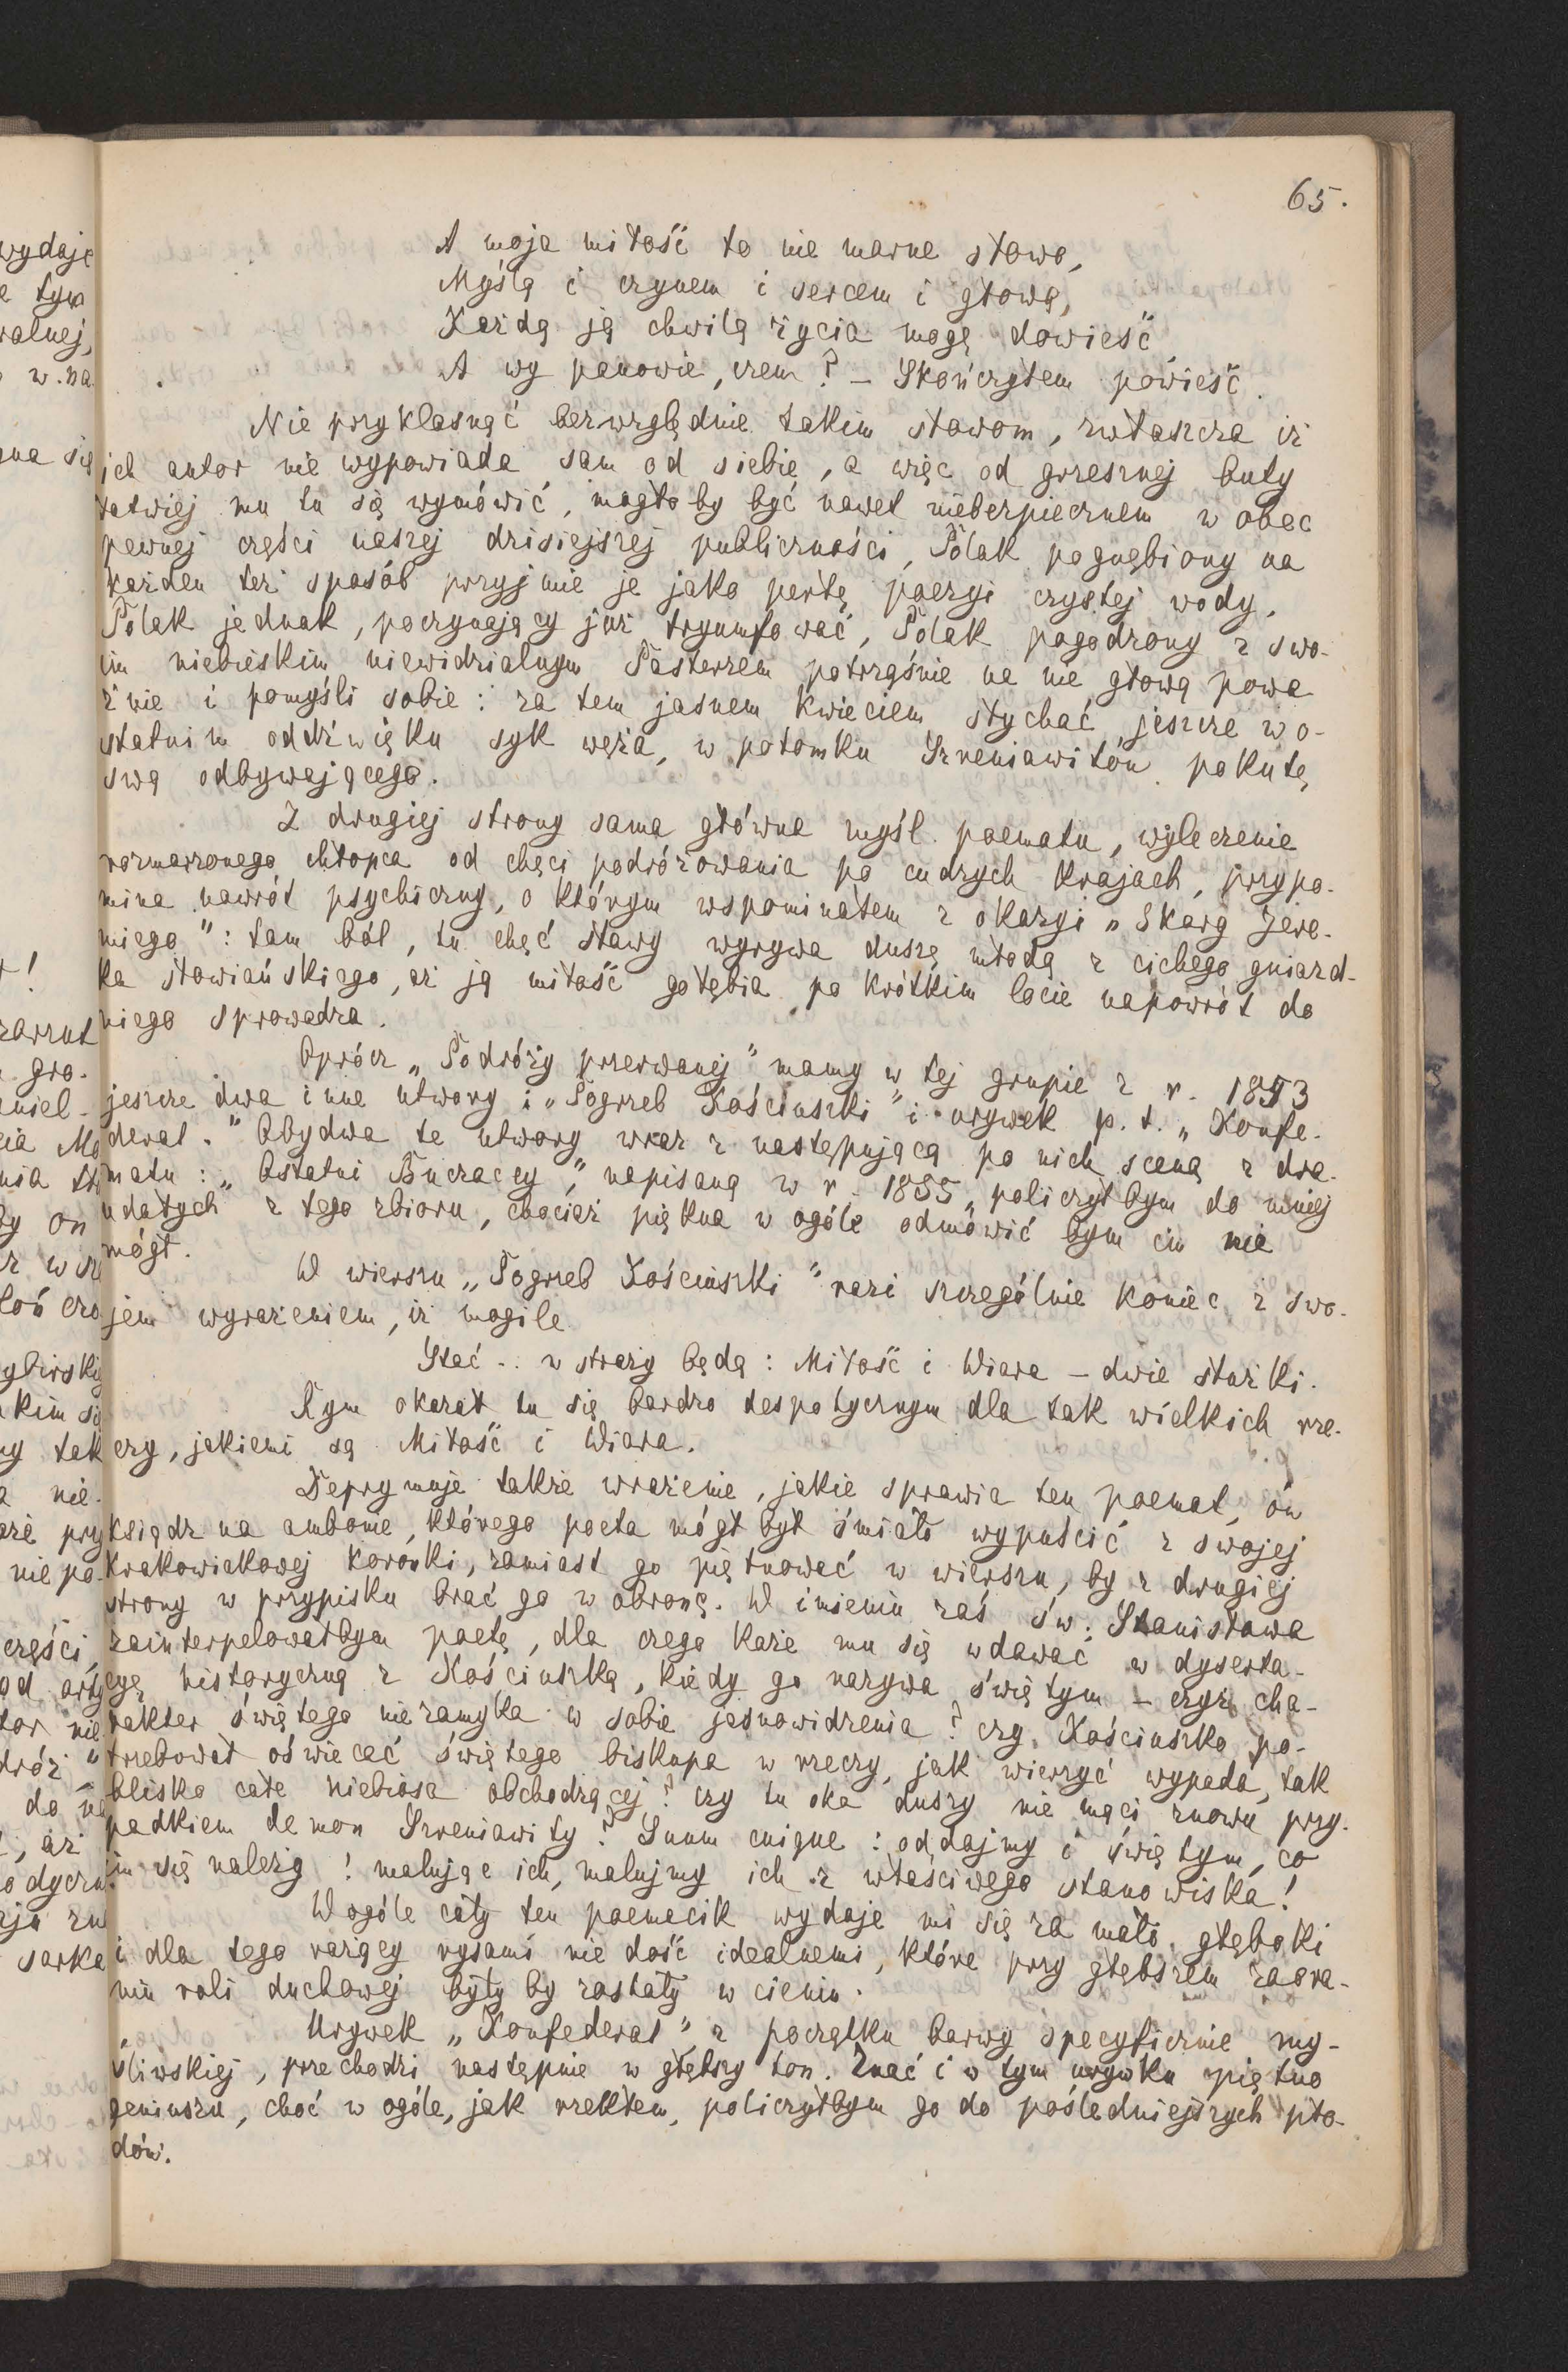 65.
A moja miłość to nie marne słowo,
Myślą i czynem i sercem i głową,
Każdą ją chwilą życia mogę dowieść
A wy panowie, czem? – Skończyłem powieść.
Nie przyklasnąć bezwzględnie takim słowom, zwłaszcza iż
ich autor nie wypowiada sam od siebie, a więc od grzesznej buty
łatwiej mu tu się wymówić, mogło by być nawet niebezpiecznem w obec
pewnej części naszej dzisiejszej publiczności, Polak pognębiony na
każden też sposób przyjmie je jako perłę poezyi czystej wody.
Polak jednak, poczynający już tryumfować, Polak pogodzony z swo-
im niebieskim niewidzialnym Pasterzem potrząśnie na nie głową powa
żnie i pomyśli sobie: za tem jasnem kwieciem słychać jeszcze w o-
statnim oddźwięku syk węża, w potomku Szreniawitów pokutę
swą odbywającego.
Z drugiej strony sama główna myśl poematu, wyleczenie
rozmarzonego chłopca od chęci podróżowania po cudzych krajach, przypo-
mina nawrót psychiczny, o którym wspominałem z okazyi „Skarg Jere-
miego": tam ból, tu chęć sławy wyrywa duszę młodą z cichego gniazd-
ka słowiańskiego, aż ją miłość gołębia po krótkim locie napowrót do
niego sprowadza.
Oprócz „Podróży przerwanej" mamy w tej grupie z r. 1853
jeszcze dwa inne utwory i „Pogrzeb Kościuszki" i urywek p. t. „Konfe-
derat." Obydwa te utwory wraz z następującą po nich sceną z dra-
matu: „Ostatni Buczaccy," napisaną w r. 1855, policzyłbym do mniej
udatych z tego zbioru, chociaż piękna w ogóle odmówić bym im nie
mógł.
W wierszu „Pogrzeb Kościuszki" razi szczególnie koniec z swo-
jem wyrażeniem, iż mogile
Stać .. w straży będą: Miłość i Wiara – dwie stażki.
Rym okazał tu się bardzo despotycznym dla tak wielkich rze-
czy, jakiemi są Miłość i Wiara.
Deprymuje także wrażenie, jakie sprawia ten poemat, ów
ksiądz na ambonie, którego poeta mógł był śmiało wypuścić z swojej
krakowiakowej koronki, zamiast go piętnować w wierszu, by z drugiej
strony w przypisku brać go w obronę. W imieniu zaś św. Stanisława
zainterpelowałbym poetę, dla czego każe mu się wdawać w dyserta-
cyę historyczną z Kościuszką, kiedy go nazywa świętym – czyż cha-
rakter świętego nie zamyka w sobie jasnowidzenia? czy Kościuszko po-
trzebował oświecać świętego biskupa w rzeczy, jak wierzyć wypada, tak
blisko całe niebiosa obchodzącej? czy tu oka duszy nie mąci znowu przy-
padkiem demon Szreniawity? Suum cuique: oddajmy i świętym, co
im się należy! malując ich, malujmy ich z właściwego stanowiska!
W ogóle cały ten poemacik wydaje mi się za mało głęboki
i dla tego rażący rysami nie dość idealnemi, które przy głębszem zaora-
niu roli duchowej były by zostały w cieniu.
Urywek „Konfederat" z początku barwy specyficznie my-
śliwskiej, przechodzi następnie w głębszy ton. Znać i w tym urywku piętno
geniuszu, choć w ogóle, jak rzekłem, policzyłbym go do pośledniejszych pło-
dów.